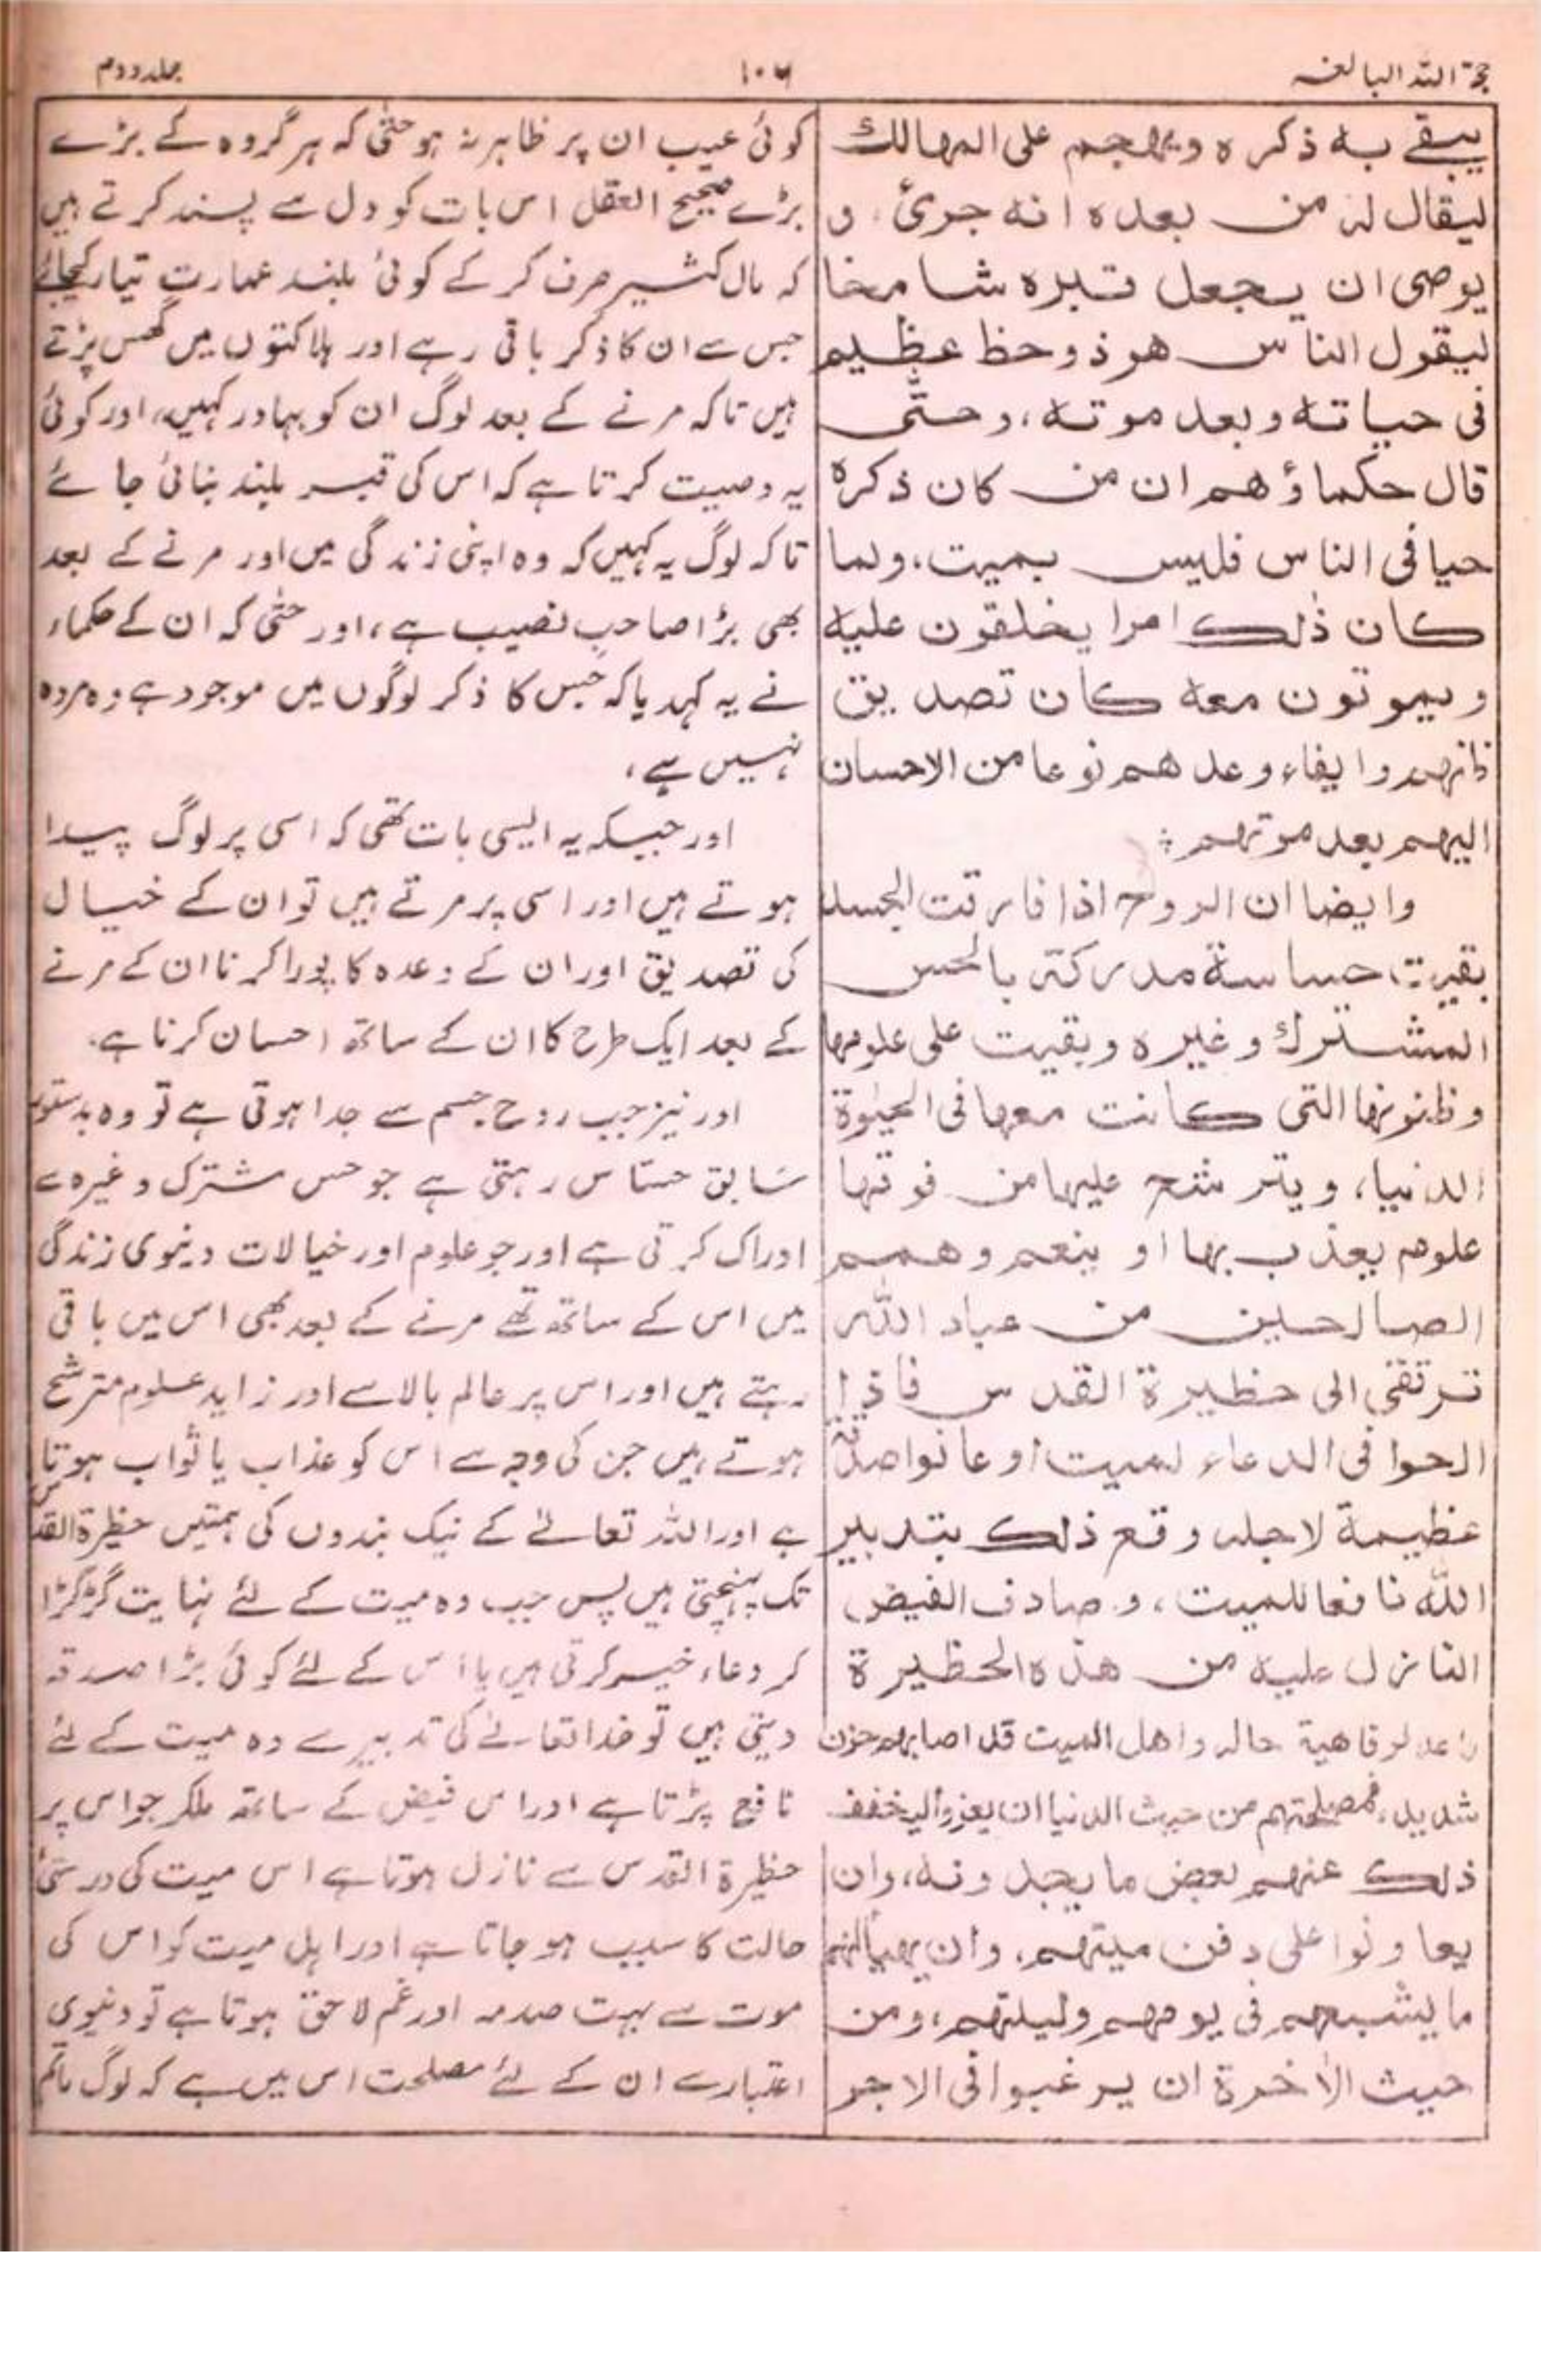 حجۃ اللہ البالغہ
۱۰۶
جلد دوم
يبقے به ذكره ويهجم على المهالك
ليقال له من بعده انه جرئ، و
يوصى ان يجعل قبره شامخا
ليقول الناس هو ذو حظ عظيم
فى حياته وبعد موته، وحتّى
قال حكماؤهم ان من كان ذكره
حيا فى الناس فليس بميت، ولما
كان ذٰلك امرا يخلقون عليه
ويموتون معه كان تصديق
ظنهم وايفاء وعدهم نوعا من الاحسان
اليهم بعد موتهم ؛
وايضا ان الروح اذا فارقت الجسد
بقيت حساسة مدركة بالحس
المشترك وغيره وبقيت على علومها
وظنونها التى كانت معها فى الحيٰوة
الدنيا، ويترشح عليها من فوقها
علوم يعذب بها او ينعم وهمم
الصالحين من عباد اللّٰه
ترتقى الى حظيرة القدس فاذا
الحوا فى الدعاء لميت او عانوا صدقة
عظيمة لاجله وقع ذلك بتدبير
اللّٰه نافعا للميت، وصادف الفيض
النازل عليه من هذه الحظيرة
فاعد لرفاهية حاله واهل الميت قد اصابهم حزن
شديد، فمصلحتهم من حيث الدنيا ان يعزوا ليخفف
ذلك عنهم بعض ما يجدونه، وان
يعاونوا على دفن ميتهم، وان يهيأ لهم
ما يشبعهم فى يومهم وليلتهم، ومن
حيث الاٰخرة ان يرغبوا فى الاجر
کوئی عیب ان پر ظاہر نہ ہو حتیٰ کہ ہر گروہ کے بڑے
بڑے صحیح العقل اس بات کو دل سے پسند کرتے ہیں
کہ مال کثیر صرف کر کے کوئی بلند عمارت تیار کیجائے
جس سے ان کا ذکر باقی رہے اور ہلاکتوں میں گھس پڑتے
ہیں تاکہ مرنے کے بعد لوگ ان کو بہادر کہیں، اور کوئی
یہ وصیت کرتا ہے کہ اس کی قبر بلند بنائی جائے
تاکہ لوگ یہ کہیں کہ وہ اپنی زندگی میں اور مرنے کے بعد
بھی بڑا صاحب نصیب ہے، اور حتیٰ کہ ان کے حکماء
نے یہ کہدیا کہ جس کا ذکر لوگوں میں موجود ہے وہ مردہ
نہیں ہے،
اور جبکہ یہ ایسی بات تھی کہ اسی پر لوگ پیدا
ہوتے ہیں اور اسی پر مرتے ہیں تو ان کے خیال
کی تصدیق اور ان کے وعدہ کا پورا کرنا ان کے مرنے
کے بعد ایک طرح کا ان کے ساتھ احسان کرنا ہے.
اور نیز جب روح جسم سے جدا ہوتی ہے تو وہ بدستور
سابق حسّاس رہتی ہے جو حس مشترک وغیرہ سے
ادراک کرتی ہے اور جو علوم اور خیالات دنیوی زندگی
میں اس کے ساتھ تھے مرنے کے بعد بھی اس میں باقی
رہتے ہیں اور اس پر عالم بالا سے اور زاید علوم مترشح
ہوتے ہیں جن کی وجہ سے اس کو عذاب یا ثواب ہوتا
ہے اور اللہ تعالےٰ کے نیک بندوں کی ہمتیں حظیرۃ القدس
تک پہنچتی ہیں پس جب وہ میت کے لئے نہایت گڑگڑا
کر دعاء خیر کرتی ہیں یا اس کے لئے کوئی بڑا صدقہ
دیتی ہیں تو خدا تعالےٰ کی تدبیر سے وہ میت کے لئے
نافع پڑتا ہے اور اس فیض کے ساتھ ملکر جو اس پر
حظیرۃ القدس سے نازل ہوتا ہے اس میت کی درستی
حالت کا سبب ہو جاتا ہے اور اہل میت کو اس کی
موت سے بہت صدمہ اور غم لاحق ہوتا ہے تو دنیوی
اعتبار سے ان کے لئے مصلحت اس میں ہے کہ لوگ ماتم